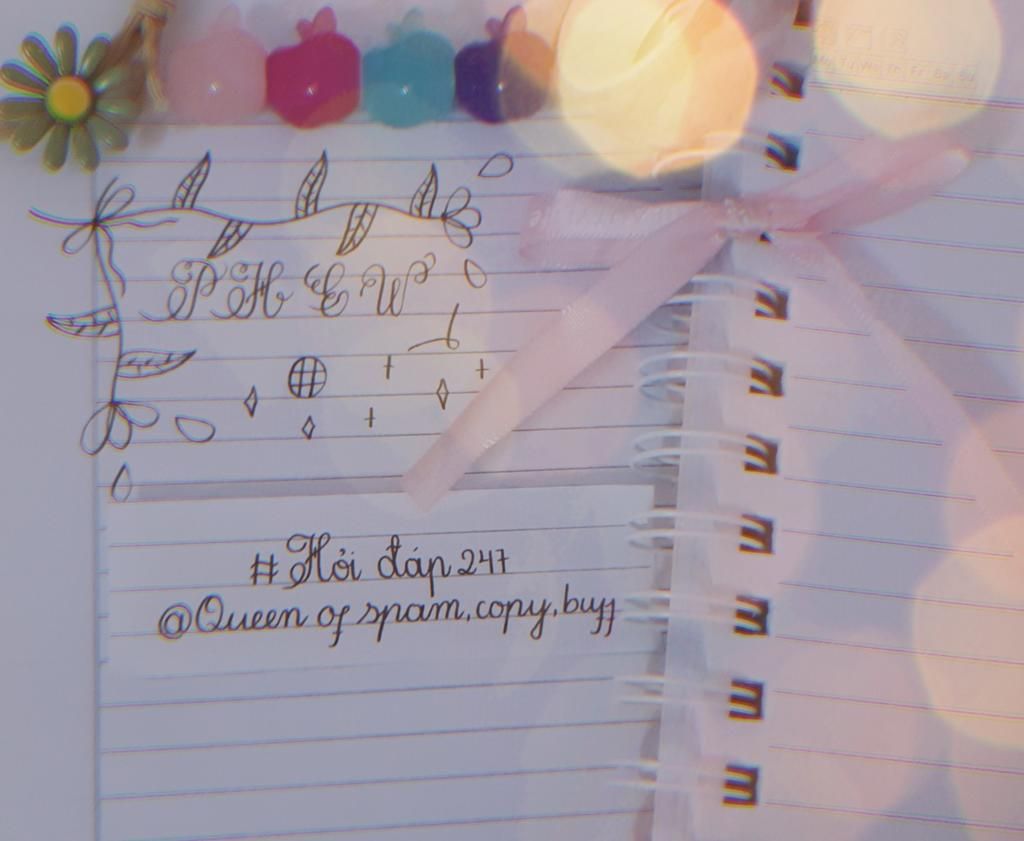 PHEW
#Hỏi đáp 247
@Queen of spam,copy,buff